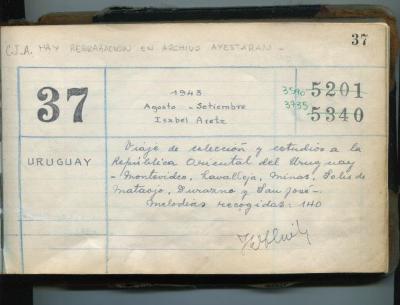 37
C.J.A. HAY REGRABACION EN ARCHIVO AYESTARAN -
37
1943
Agosto - Setiembre
Isabel Aretz
3590 5201
3735 5340
URUGUAY
Viaje de colección y estudios a la
República Oriental del Uruguay
- Montevideo, Lavalleja, Minas, Solís de
Mataojo, Durazno y San José -
Melodías recogidas: 140